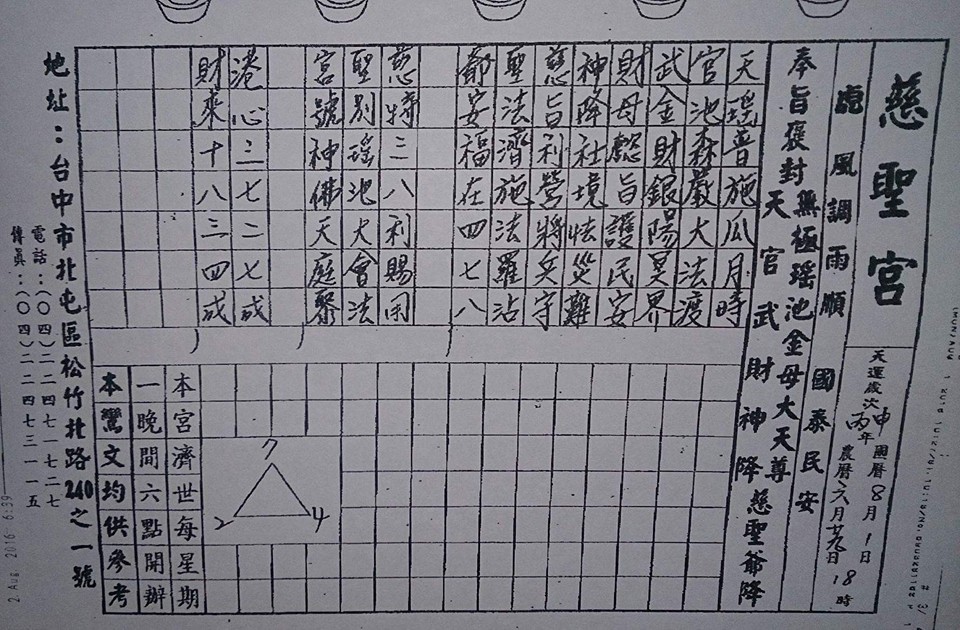 慈聖宮
天運歲次丙申年
國曆8月1日
農曆六月廿九日18時
風調雨順 國泰民安
奉旨褒封 無極瑤池金母大天尊
天官武財神降 慈聖爺降
天瑤普施瓜月時
官池森嚴大法渡
武金財銀陽冥界
財母懿旨護民安
神降社境怯災難
慈旨利營將兵守
聖法濟施法羅沾
爺安福在四七八
慈特三八利賜
聖別瑤池大會法
宮號神佛天庭聚
港心三七二七成
財來十八三四成
7
2 4
本宮濟世每星期
一晚間六點開辦
本鸞文均供參考
地址:台中市北屯區松竹北路240之一號
電話:(〇四)二二四七一七二七
傳眞:(〇四)二二四七三一一五
2 Aug. 2016 6:39